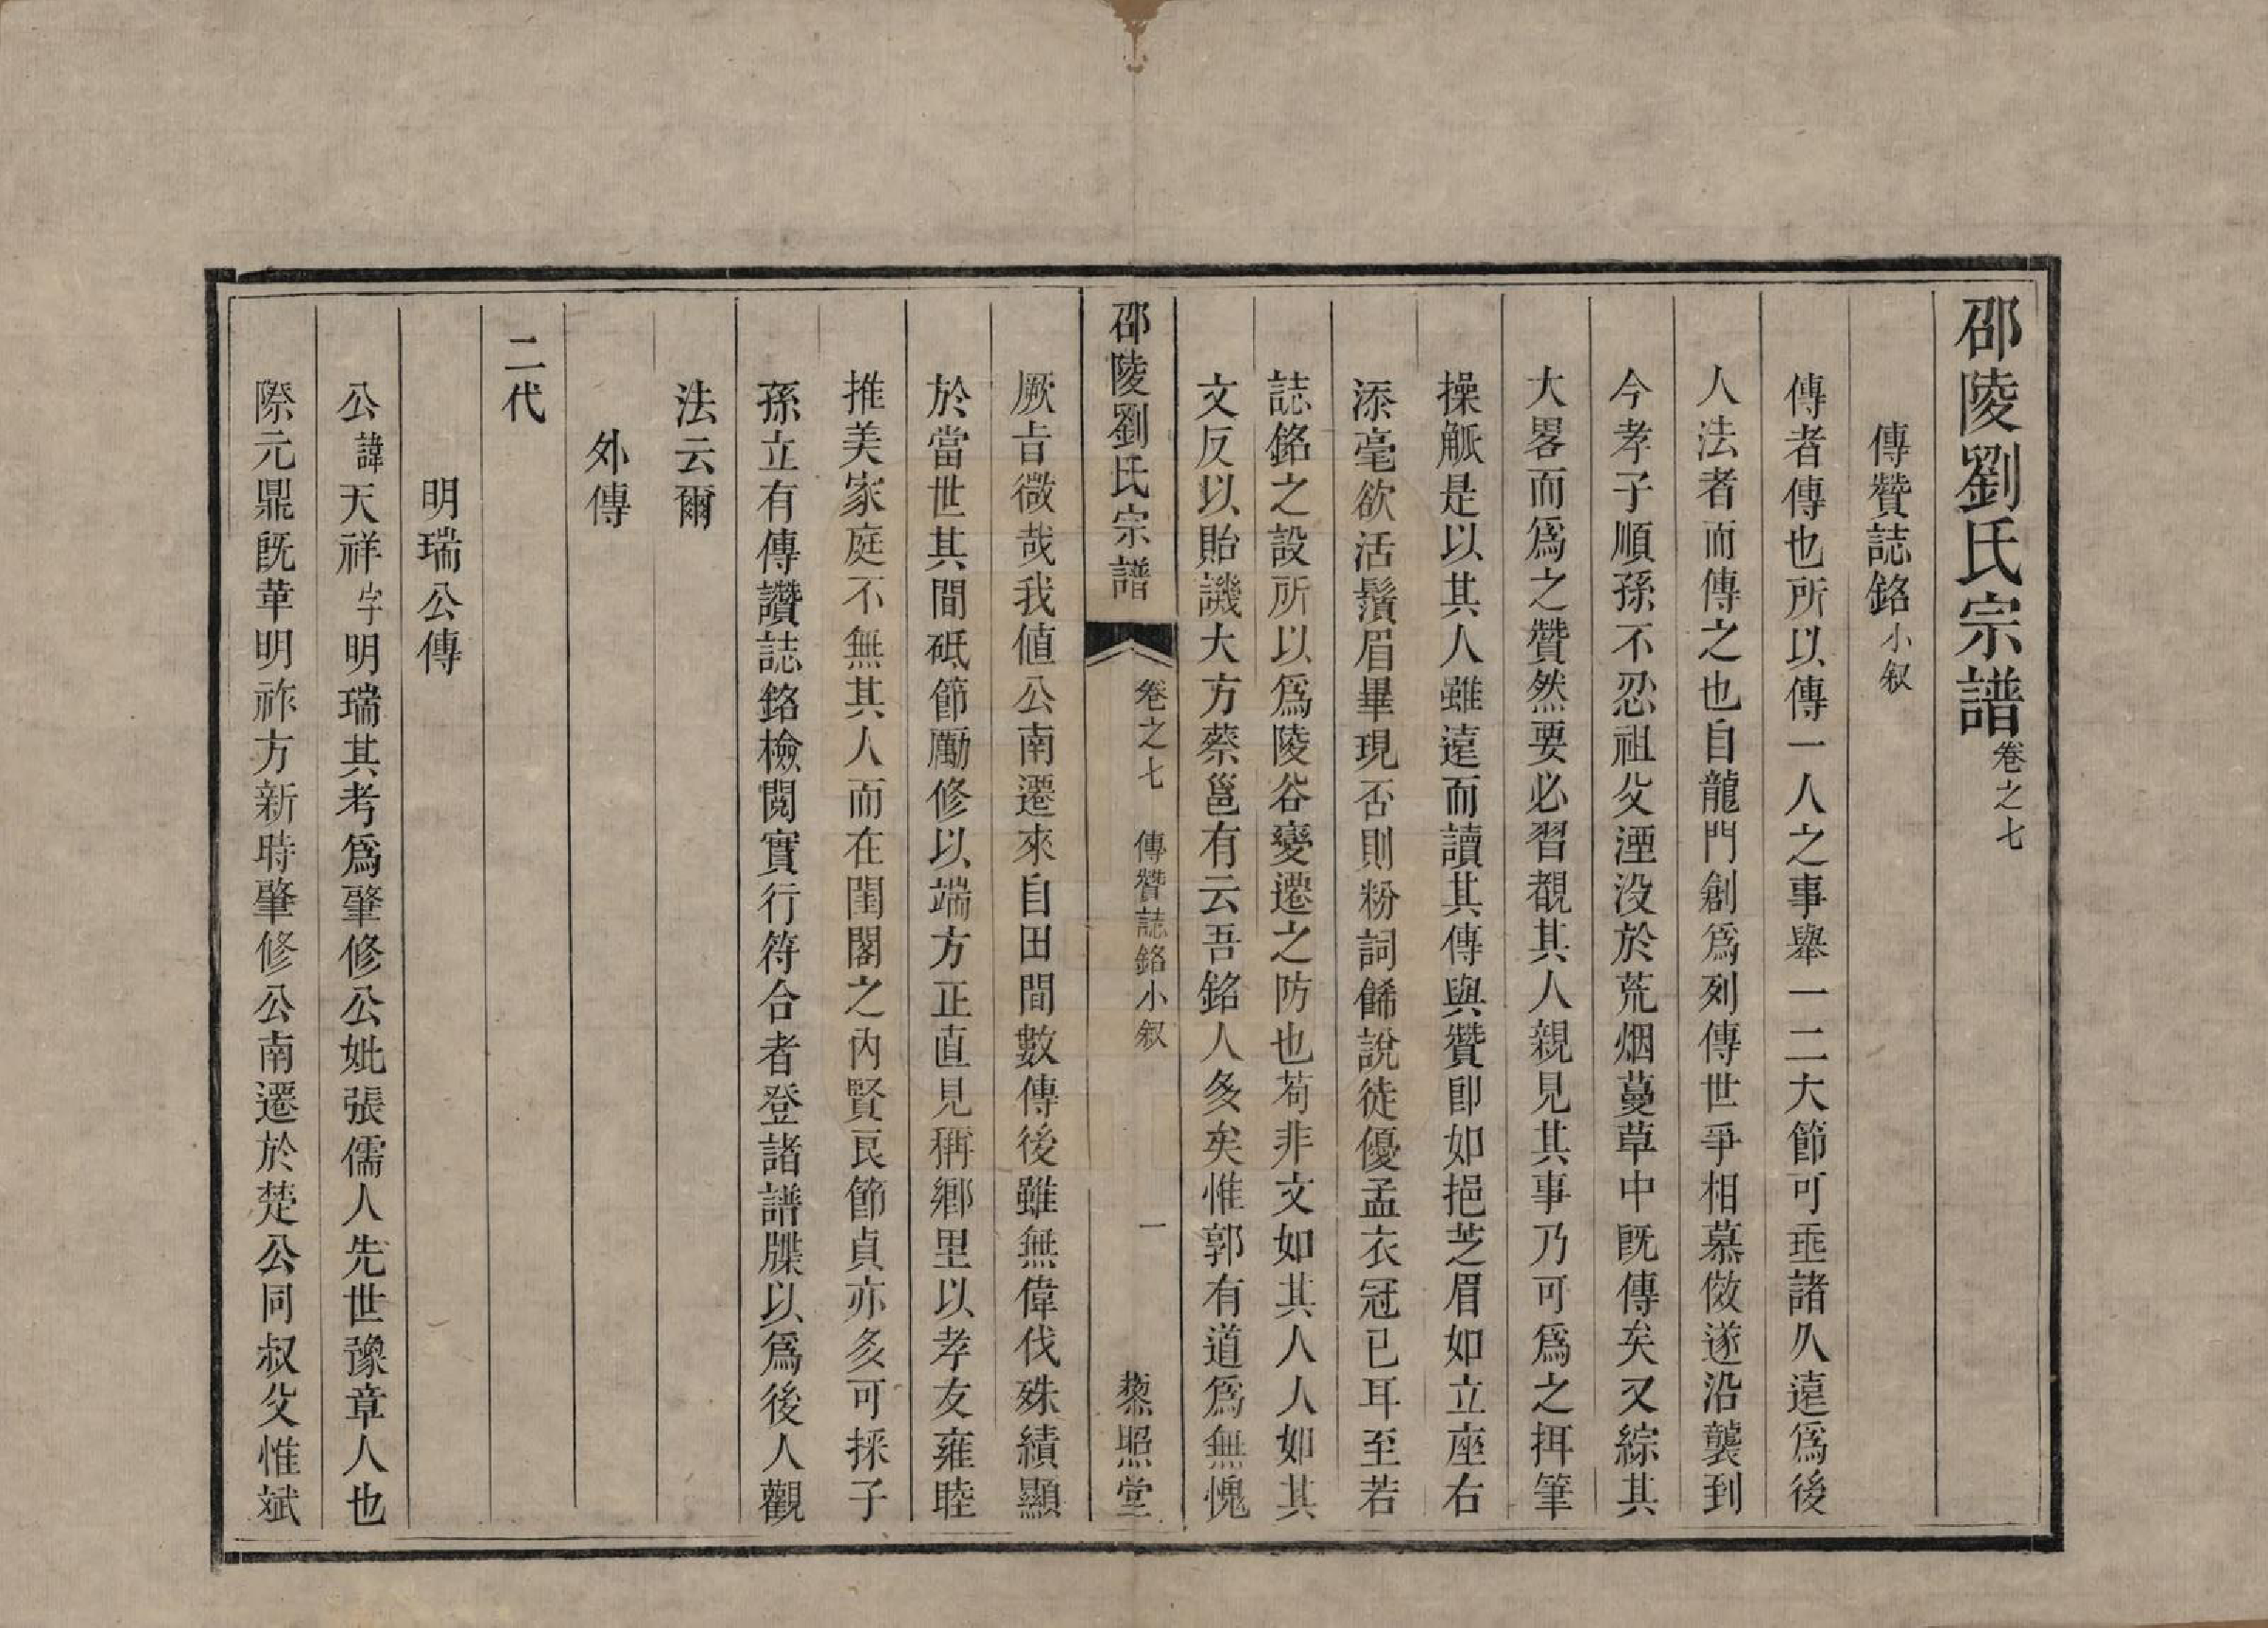 邵陵劉氏宗譜卷之七
傳贊誌銘小叙
傳者傳也所以傳一人之事舉一二大節可垂諸久遠爲後
人法者而傳之也自龍門創爲列傳世爭相慕倣遂沿襲到
今孝子順孫不忍祖父湮没於荒烟蔓草中既傳矣又綜其
大畧而爲之贊然要必習覩其人親見其事乃可爲之揖筆
操觚是以其人雖遠而讀其傳與贊卽如挹芝眉如立座右
添毫欲活鬚眉畢現否則粉詞餙說徒優孟衣冠已耳至若
誌銘之設所以爲陵谷變遷之防也苟非文如其人人如其
文反以貽譏大方蔡邕有云吾銘人多矣惟郭有道爲無愧
邵陵劉氏宗譜 卷之七 傳贊誌銘小叙 一 藜照堂
厥旨微哉我値公南遷來自田間數傳後雖無偉伐殊績顯
於當世其間砥節勵修以端方正直見稱鄉里以孝友雍睦
推美家庭不無其人而在閨閣之內賢良節貞亦多可採子
孫立有傳讚誌銘檢閱實行符合者登諸譜牒以爲後人觀
法云爾
外傳
二代
明瑞公傳
公諱天祥字明瑞其考爲肇修公妣張儒人先世豫章人也
際元鼎既革明祚方新時肇修公南遷於楚公同叔父惟斌